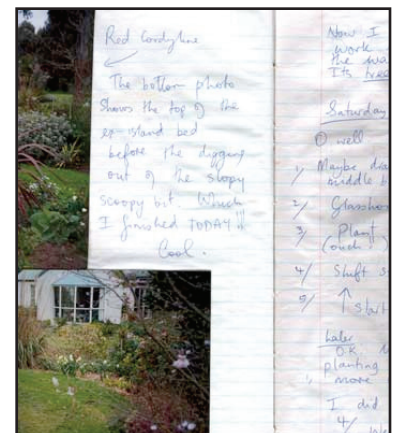 Red Cordyline
The bottom photo
Shows the top of the
ex-island bed
before the digging
out of the slopy
scoopy bit which
I finished TODAY!!
Cool.
Now I
work
the wa
Its
Saturday
well
1/ Maybe
middle
2/ Glassho
3/ Plant
(ouch!)
4/ Shift s
5/ ↑
start
Later
O.K.
planting
more
I did
4/